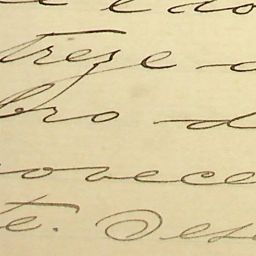 e do
treze d
bro d
novece
te. Des